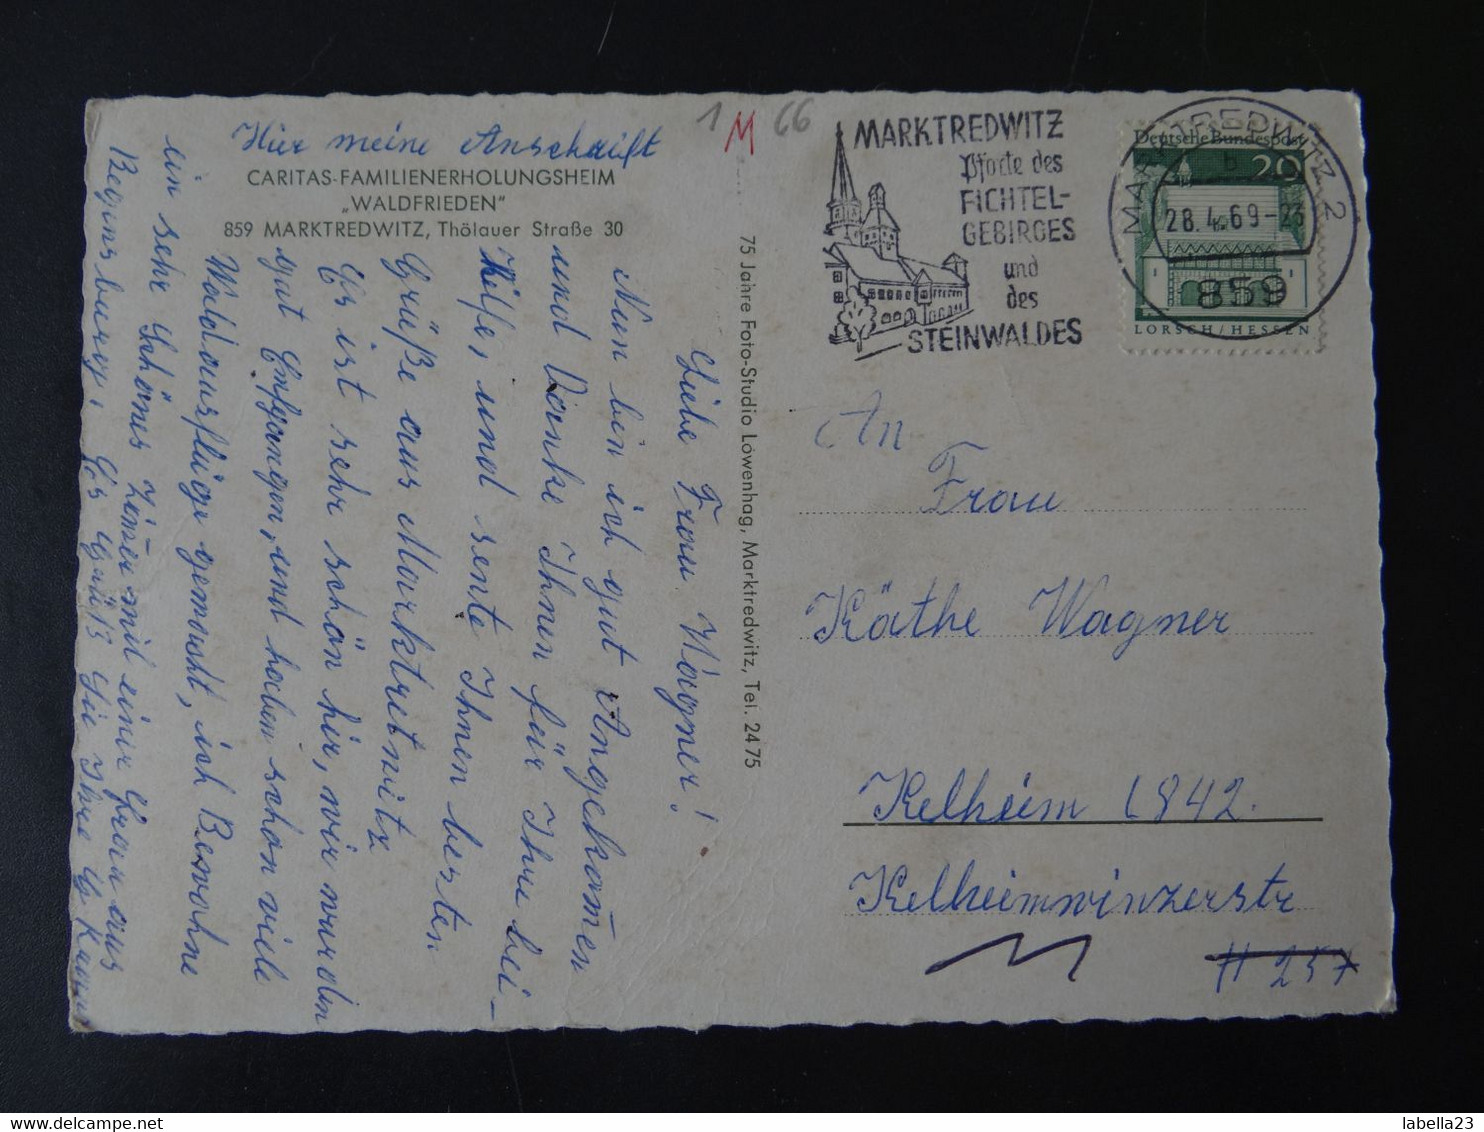 Hier meine Anschrift
CARITAS-FAMILIENERHOLUNGSHEIM
„WALDFRIEDEN"
859 MARKTREDWITZ, Thölauer Straße 30
Liebe Frau Wagner!
Nun bin ich gut Angekom̅en
und Danke Ihnen für Ihre bei-
Hilfe, und sente Ihnen besten
Grüße aus Marktretwitz
Es ist sehr schön hir, wir wurdin
gut Emfgangen, und haben schon viele
Waldausflüge gemacht, ich Bewohne
ein sehr Schönes Zim̅er mit einer Frau aus
Regensburg, Es Grüßt Sie Ihre
75 Jahre Foto-Studio Löwenhag, Marktredwitz, Tel. 2475
1 M 66
MARKTREDWITZ
Pforte des
FICHTEL-
GEBIRGES
und
des
STEINWALDES
MARKTREDWITZ 2
b
28.4.69-23
859
Deutsche Bundespost
20
LORSCH/HESSEN
An
Frau
Käthe Wagner
Kelheim 842.
Kelheimwinzerstr
# 257
labella23